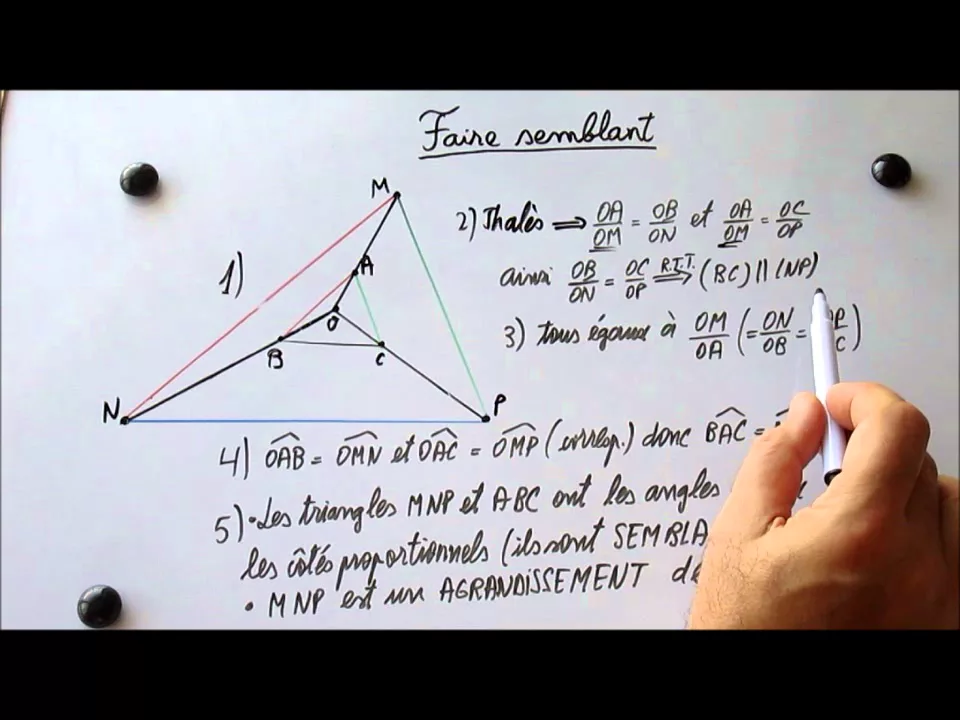 Faire semblant
1)
M
A
O
B
C
N
P
2) Thalès ⟹ OA/OM = OB/ON et OA/OM = OC/OP
ainsi OB/ON = OC/OP R.T.T. ⟹ (BC) // (NP)
3) tous égaux à OM/OA (= ON/OB =
4) OAB = OMN et OAC = OMP (corresp.) donc BAC =
5) • Les triangles MNP et ABC ont les angles
les côtés proportionnels (ils sont SEMBLA
• MNP est un AGRANDISSEMENT de